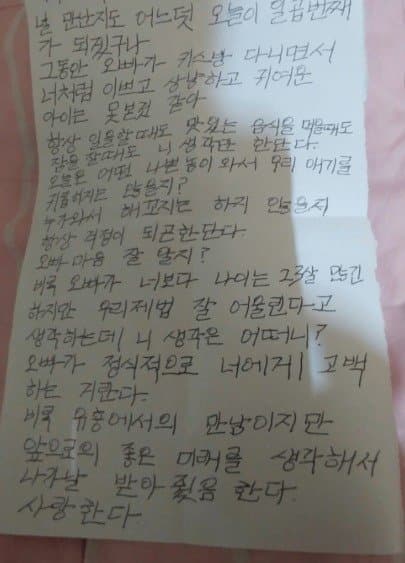 널 만난지도 어느덧 오늘이 일곱번째
가 되었구나
그동안 오빠가 키스방 다니면서
너처럼 이쁘고 상냥하고 귀여운
아이는 못본것 같아
항상 일을할때도 맛있는 음식을 먹을때도
잠을 잘때도 니 생각만 한단다.
오늘은 어떤 나쁜놈이 와서 우리 애기를
괴롭히지는 않을지?
누가와서 해꼬지는 하지 않을지
항상 걱정이 되곤한단다.
오빠 마음 잘 알지?
비록 오빠가 너보다 나이는 23살 많긴
하지만 우리제법 잘 어울린다고
생각하는데 니 생각은 어떠니?
오빠가 정식적으로 너에게 고백
하는 거란다.
비록 유흥에서의 만남이지만
앞으로의 좋은 미래를 생각해서
나가날 받아줬음 한다.
사랑한다